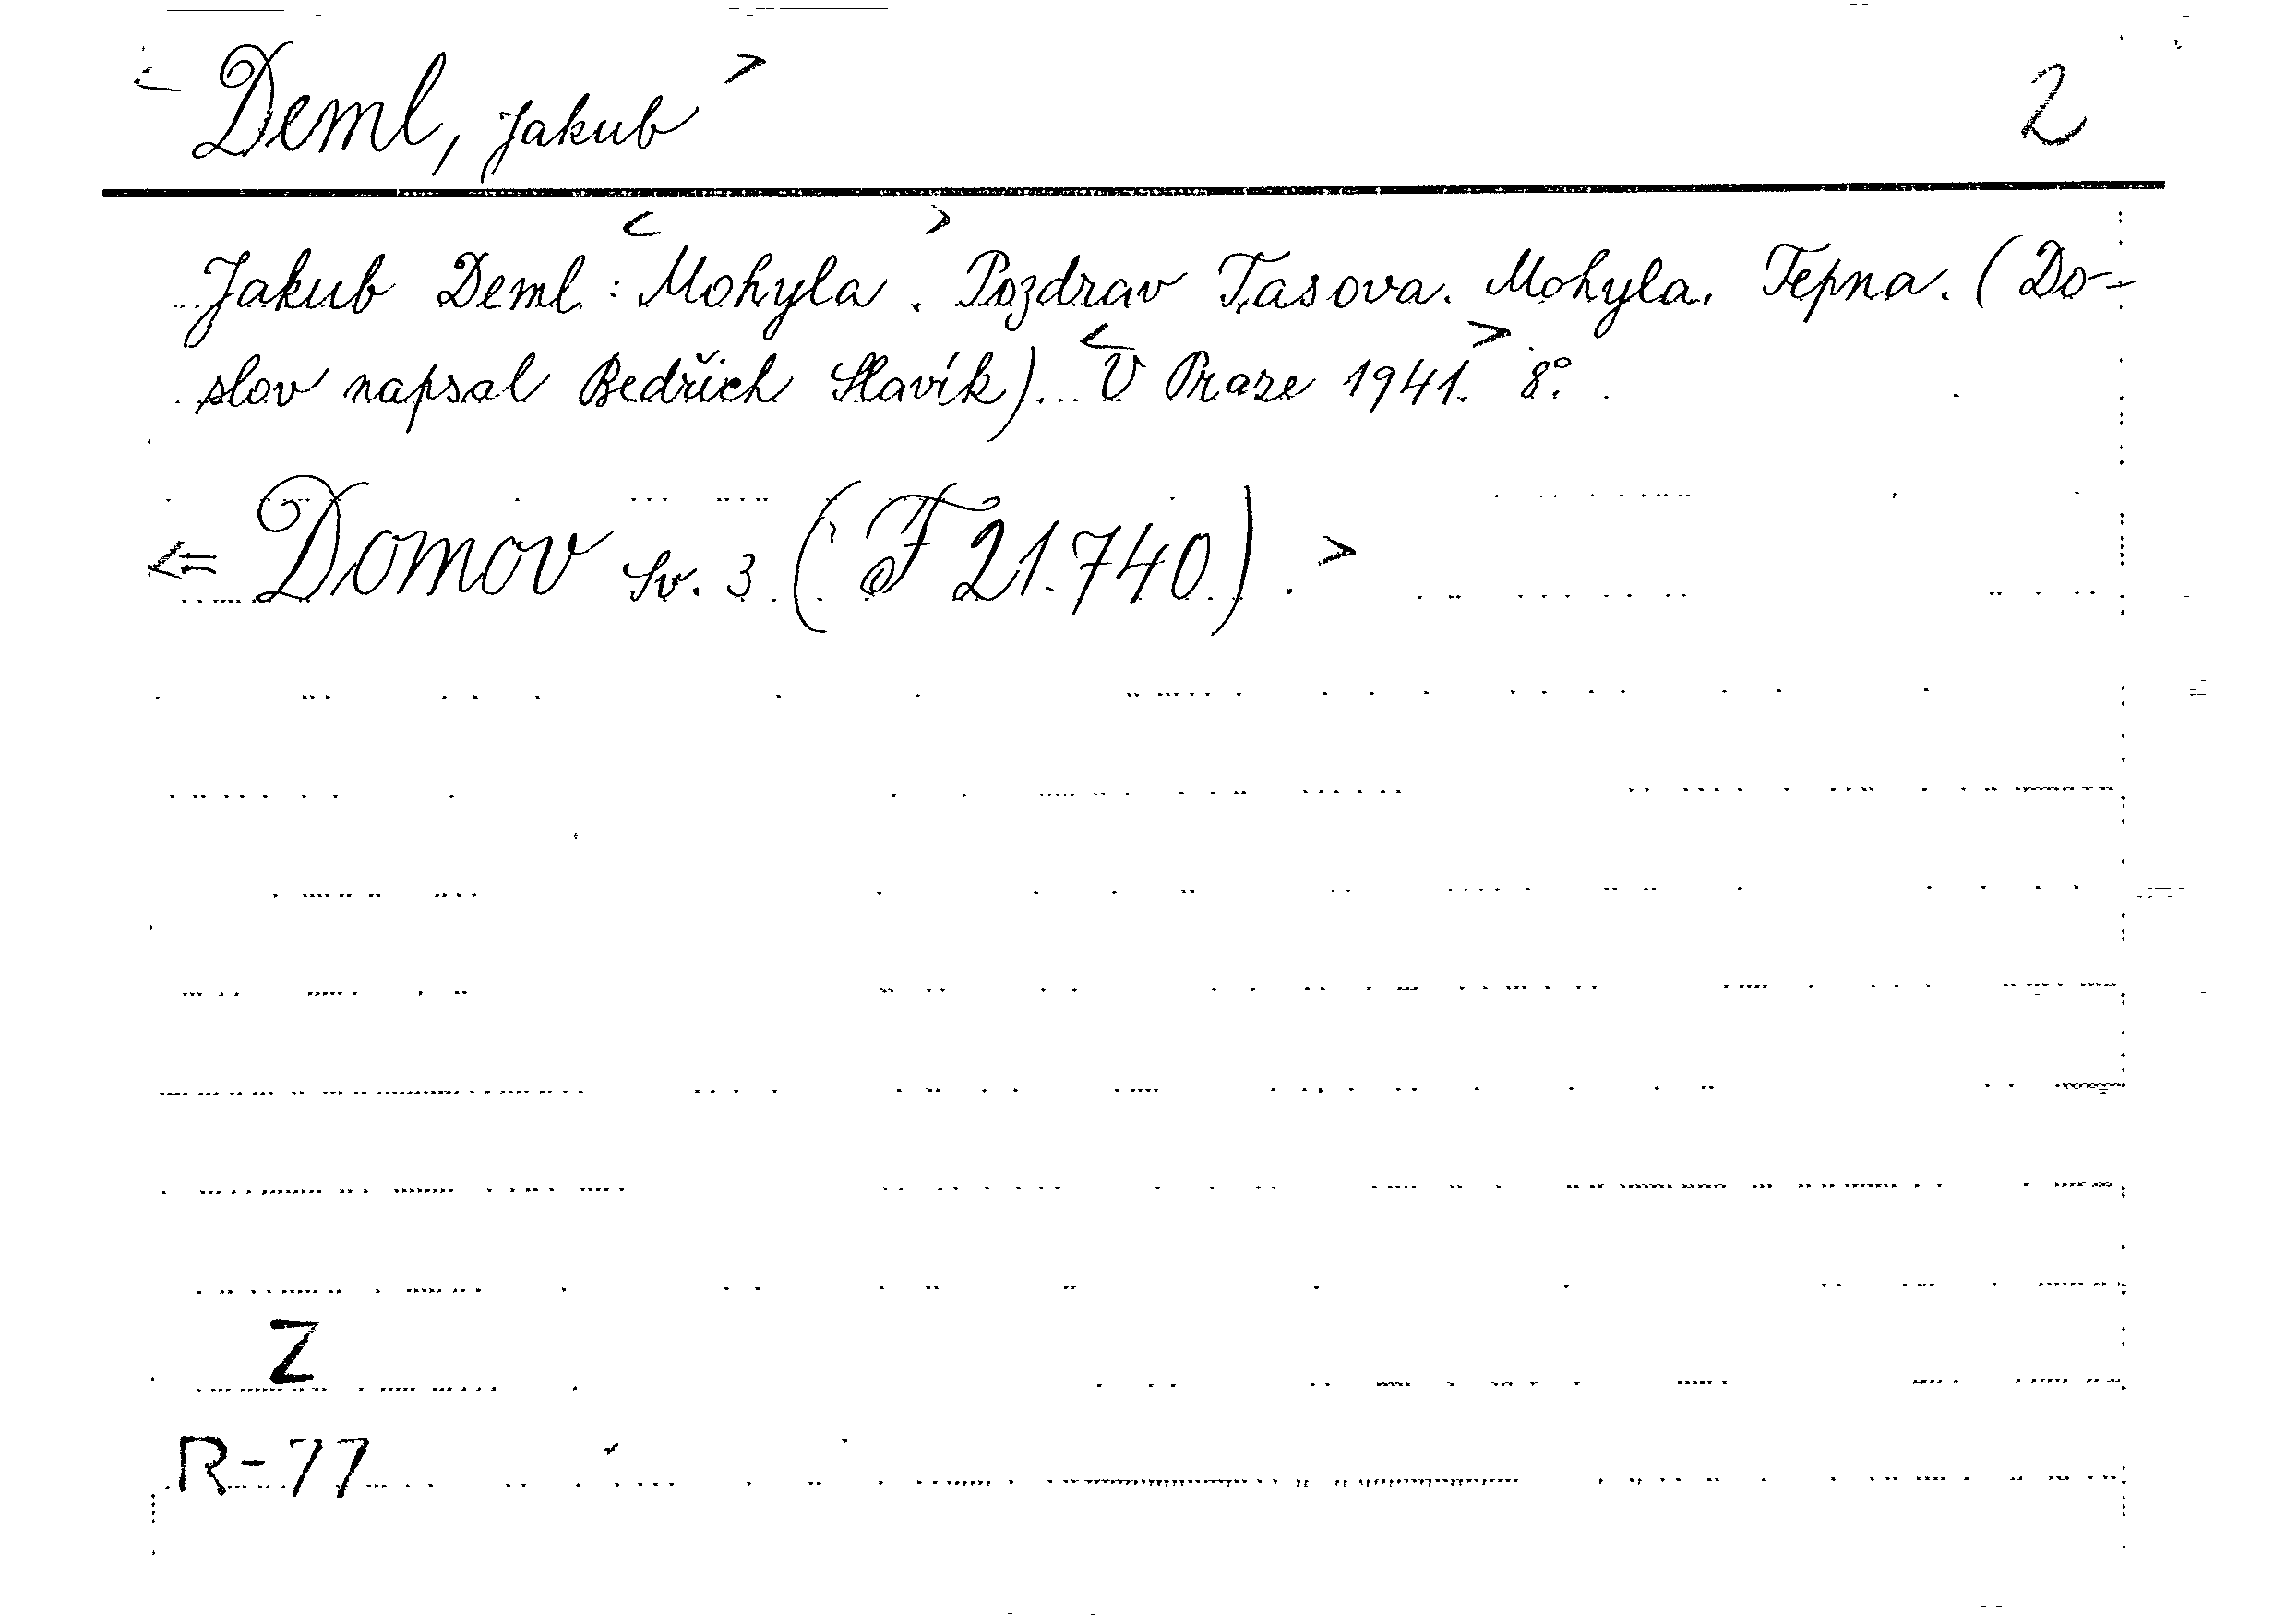 < Deml, Jakub > 2
Jakub Deml : < Mohyla > . Pozdrav Tasova. Mohyla. Tepna. (Do-
slov napsal Bedřich Slavík). < V Praze 1941. > 8°.
<= Domov Sv. 3 (F 21.740.) . >
Z
R-77